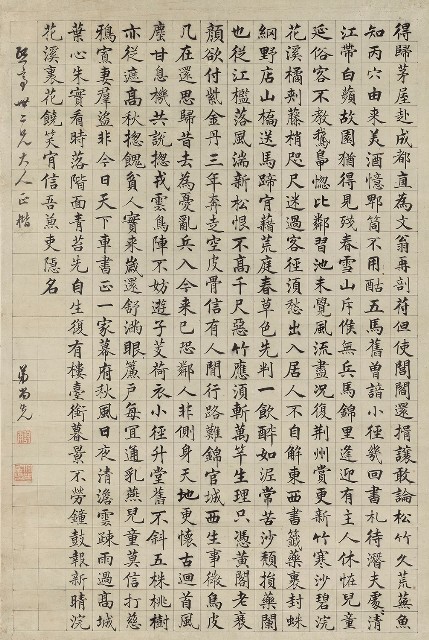 得歸茅屋赴成都直為文翁再剖符但使閭閻還揖讓敢論松竹久荒蕪魚
知丙穴由來美酒憶郫筒不用酤五馬舊曾諳小徑幾回書札待潛夫處〻清
江帶白蘋故園猶得見殘春雪山斥候無兵馬錦里逢迎有主人休怪兒童
延俗客不教鵝鴨惱比鄰習池未覺風流盡況復荊州賞更新竹寒沙碧浣
花溪橘刺藤梢咫尺迷過客徑須愁出入居人不自解東西書籤藥裹封蛛
網野店山橋送馬蹄肯藉荒庭春草色先判一飲醉如泥常苦沙頹損藥欄
也從江檻落風湍新松恨不高千尺惡竹應須斬萬竿生理只憑黃閣老衰
顏欲付紫金丹三年奔走空皮骨信有人間行路難錦官城西生事微烏皮
几在還思歸昔去為憂亂兵入今來已恐鄰人非側身天地更懷古迴首風
塵甘息機共說摠戎雲鳥陣不妨遊子芰荷衣小徑升堂舊不斜五株桃樹
亦從遮高秋摠餽貧人實來歲還舒滿眼簾戶每宜通乳燕兒童莫信打慈
鴉寡妻羣盜非今日天下車書正一家幕府秋風日夜清澹雲疎雨過高城
葉心朱實看時落階面青苔先自生復有樓臺銜暮景不勞鐘鼓報新晴浣
花溪裏花饒笑肯信吾兼吏隱名
世二兄大人正楷
弟尚